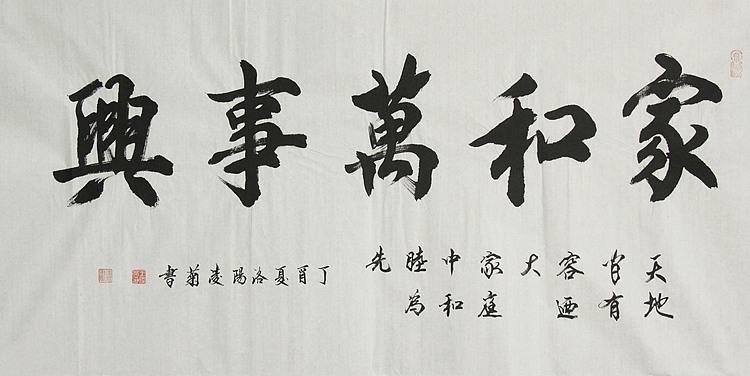 家和萬事興
天地
皆有
容迺
大
家庭
中和
睦為
先
丁酉夏洛陽凌菊書